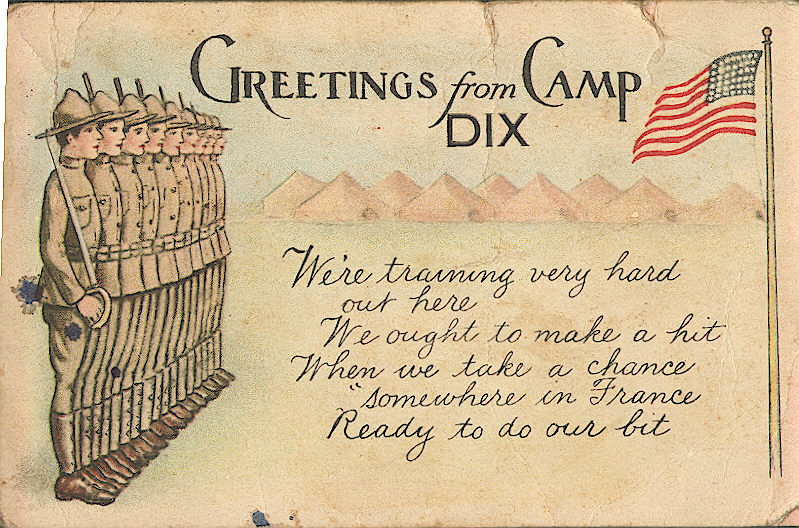 GREETINGS from CAMP
DIX
We're training very hard
out here
We ought to make a hit
When we take a chance
"somewhere in France
Ready to do our bit